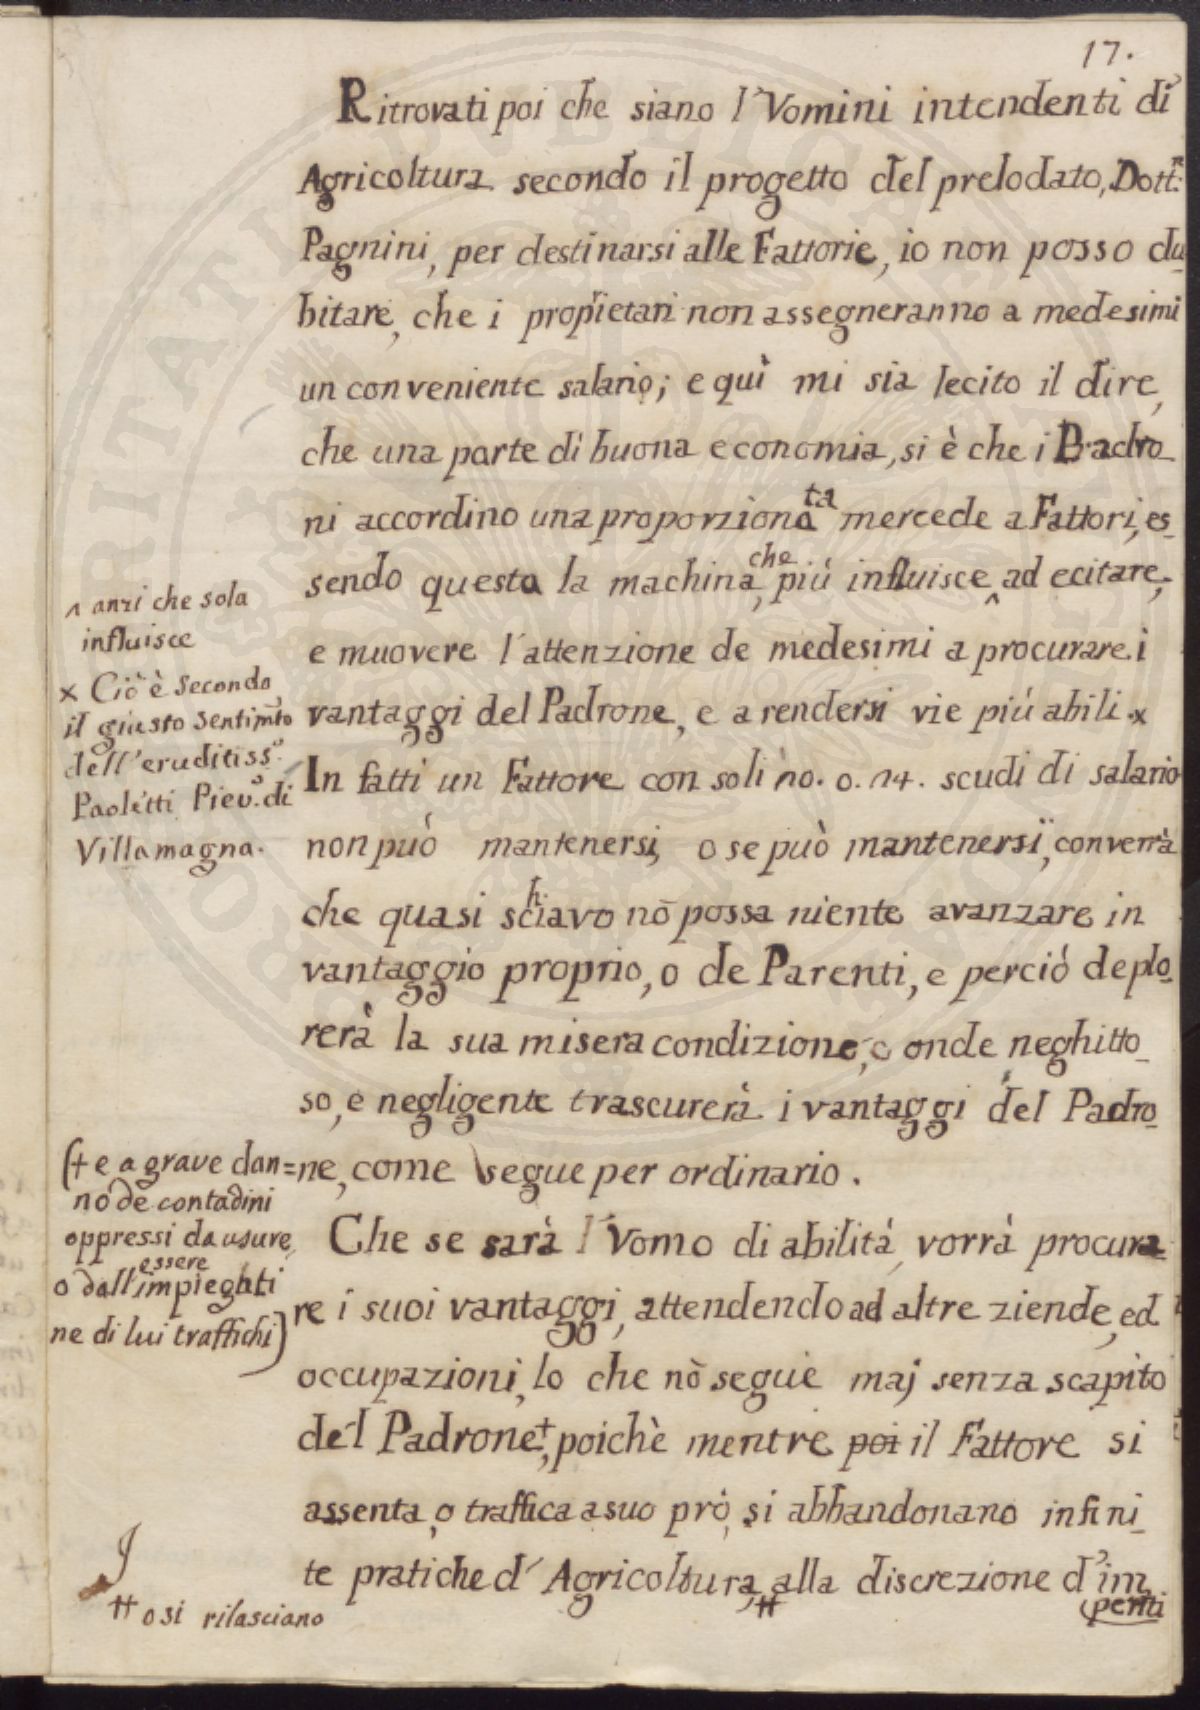 17.
Ritrovati poi che siano l'Vomini intendenti di
Agricoltura secondo il progetto del prelodato, Dott.r
Pagnini, per destinarsi alle Fattorie, io non posso du_
bitare, che i propietari non assegneranno a medesimi
un conveniente salario; e quì mi sia lecito il dire,
che una parte di buona economia, si è che i Padro_
ni accordino una proporzionata mercede a Fattori, es_
sendo questa la machina, che più influisce ^ ad ecitare,
e muovere l'attenzione de medesimi a procurare i
vantaggi del Padrone, e a rendersi vie più abili. x
In fatti un Fattore con soli no. o. 14. scudi di salario
non può mantenersi, o se può mantenersi, converrà
che quasi schiavo nō possa niente avanzare in
vantaggio proprio, o de Parenti, e perciò deplo_
rerà la sua misera condizione, o onde neghitto_
so, e negligente trascurerà i vantaggi del Padro_
ne, come segue per ordinario.
Che se sarà l'Vomo di abilità, vorrà procura_
re i suoi vantaggi, attendendo ad altre ziende, ed
occupazioni, lo che nō segue maj senza scapito
del Padrone +, poichè mentre poi il Fattore si
assenta, o traffica a suo prò, si abbandonano infini_
te pratiche d'Agricoltura, # alla discrezione d'im_
periti
^ anzi che sola
influisce
x Ciò è secondo
il giusto sentimto
dell'eruditiss.o
Paoletti Piev.o di
Villamagna.
(+ e a grave dan=
no de contadini
oppressi da usure,
o dall'essere impiegati
ne di lui traffichi)
# o si rilasciano